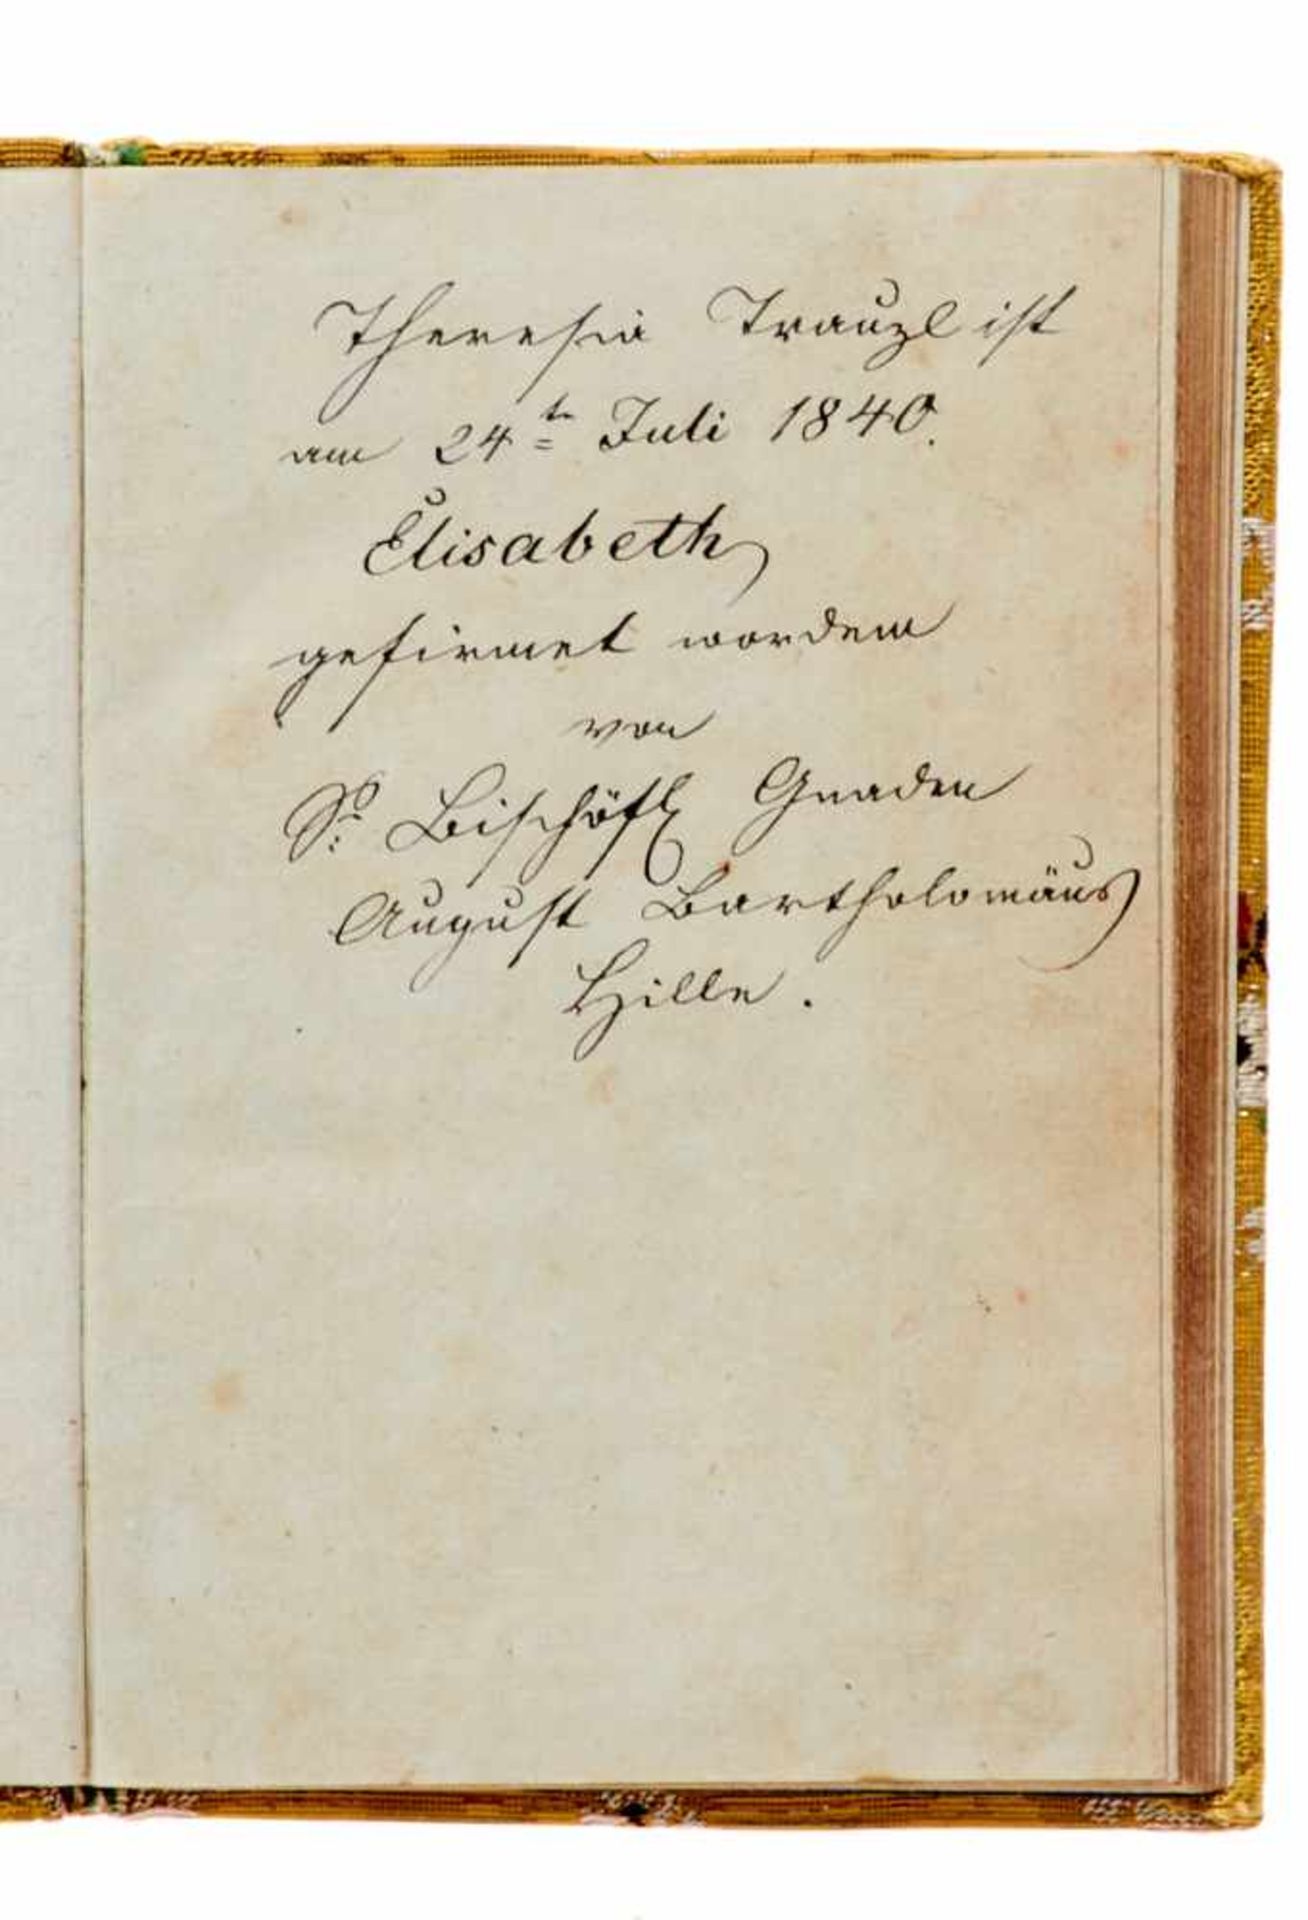 Theresia Trauzl ist
am 24te Juli 1840.
Elisabeth
gefirmet worden
von
Sr. Bischöfl Gnaden
August Bartholomäus
Hille.